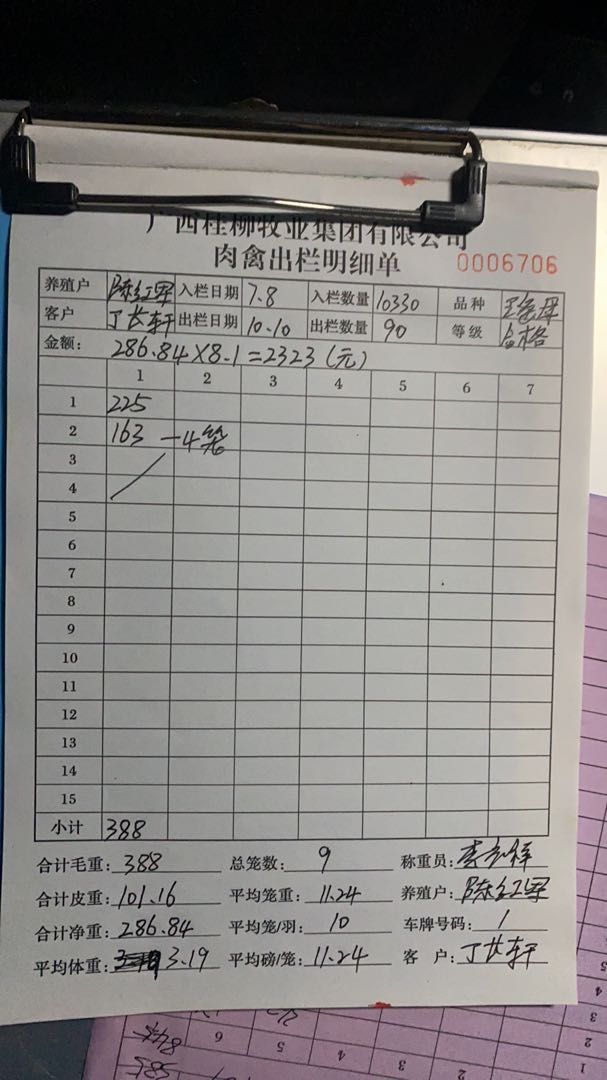 广西桂柳牧业集团有限公司
肉禽出栏明细单 0006706
养殖户 陈红军 入栏日期 7.8 入栏数量 10330 品种
客户 丁长轩 出栏日期 10.10 出栏数量 90 等级 合格
金额: 286.84×8.1=2323(元)
1 2 3 4 5 6 7
1 225
2 163 —4笼
3
4
5
6
7
8
9
10
11
12
13
14
15
小计 388
合计毛重: 388 总笼数: 9 称重员:
合计皮重: 101.16 平均笼重: 11.24 养殖户: 陈红军
合计净重: 286.84 平均笼/羽: 10 车牌号码: /
平均体重: 3.19 平均磅/笼: 11.24 客 户: 丁长轩
6 5 4 3 2